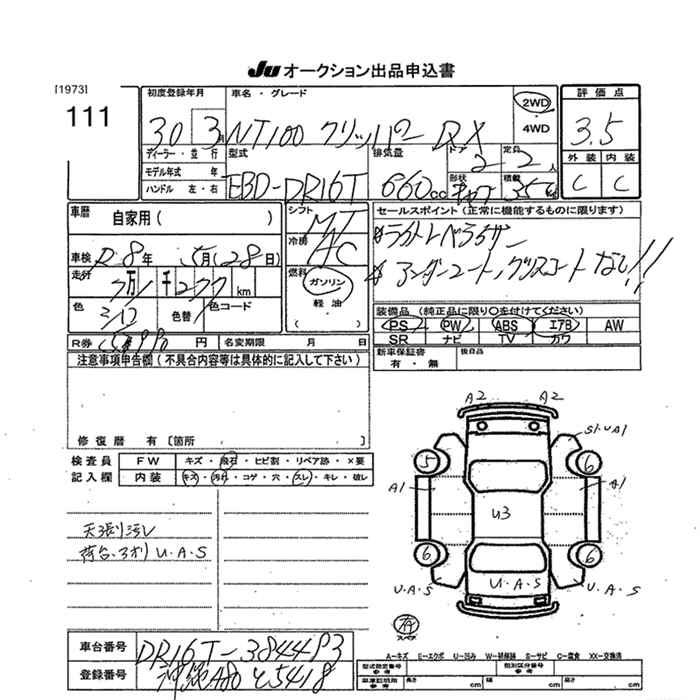 Ju オークション出品申込書
[1973]
111
初度登録年月
30 3月
車名・グレード
NT100 クリッパー DX
2WD
4WD
評価点
3.5
外装 内装
C C
ディーラー・並行
モデル年式 年
ハンドル 左・右
型式
EBD-DR16T
排気量
660cc
ドア
2
定員
2人
形状
積載
350kg
車歴
自家用( )
車検 R8年 5月28日
走行
km
色
色替
色コード
シフト
MT
冷房
AC
燃料
ガソリン
軽油
( )
セールスポイント(正常に機能するものに限ります)
アンダーコート、グリスコートなし!!
装備品(純正品に限り○を付けてください)
PS PW ABS エアB AW
SR ナビ TV カワ
R券 円
名変期限 月 日
新車保証書
有・無
後良品
注意事項申告欄(不具合内容等は具体的に記入して下さい)
修復歴 有〔箇所 〕
検査員 FW キズ・飛石・ヒビ割・リペア跡・×要
記入欄 内装 キズ・汚れ・コゲ・穴・スレ・キレ・破レ
天張り汚レ
荷台、アオリ U・A・S
A2 A2
S1・UA1
5 6
A1 A1
U3
6 6
U・A・S U・A・S U・A・S
有
スペア
A-キズ E-エクボ U-凹み W-補修跡 S-サビ C-腐食 XX-交換済
車台番号 DR16T-384493
登録番号 沖縄 480 と 5418
型式指定番号
参考
類別区分番号
参考
車庫証明用
参考
長さ cm 幅 cm 高さ cm